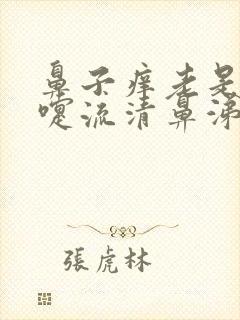 鼻子痒老是
嚏流清鼻涕
張虎林